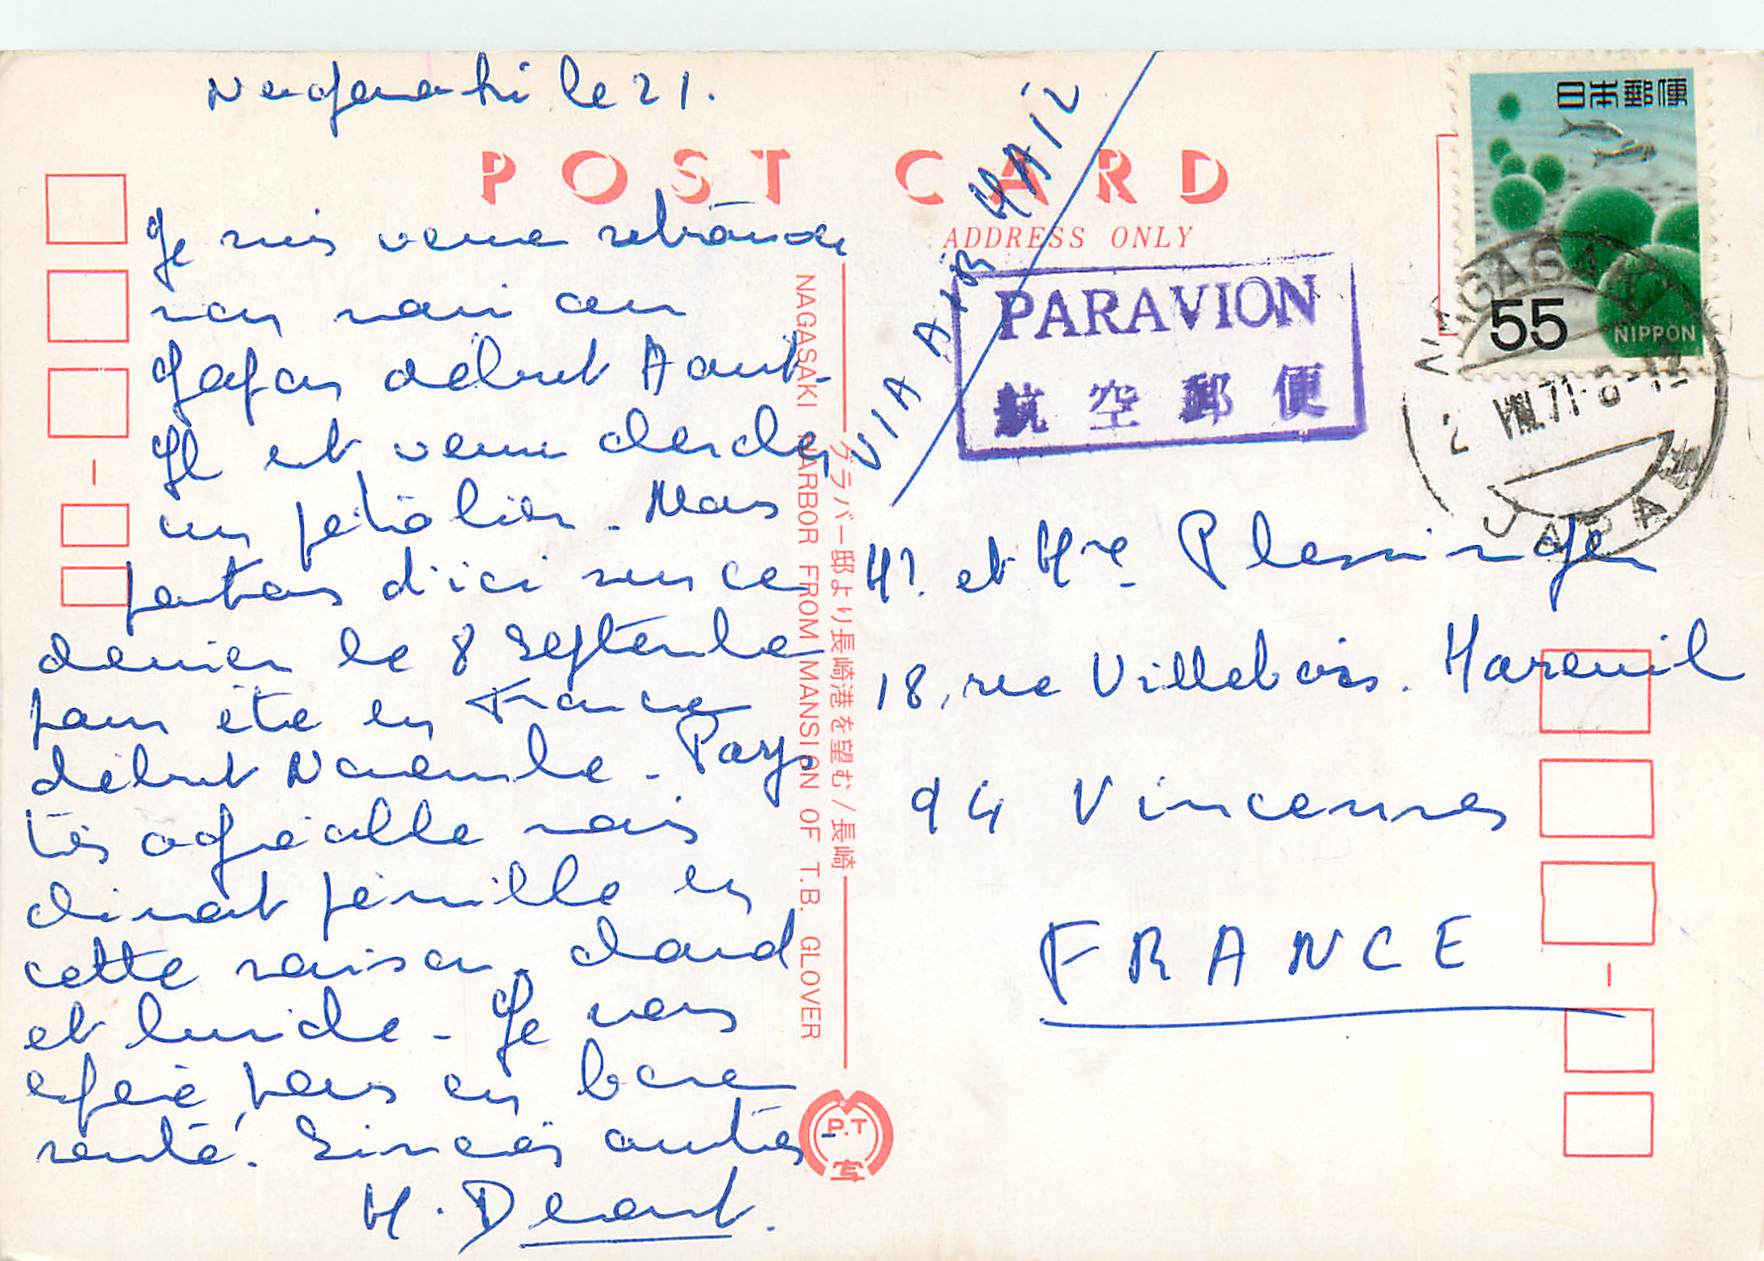 Nagasaki le 21.
POST CARD
ADDRESS ONLY
Je suis venue retrouver
mon mari au
Japon début Aout.
Il est venu chercher
un pétrolier. Nous
partons d'ici vers ce
dernier le 8 Septembre
pour être en France
début Novembre. Pays
très agréable mais
climat pénible en
cette saison, chaud
et humide. Je vous
espère tous en bonne
santé. Sincères amitiés
VIA AIR MAIL
PAR AVION
航空郵便
日本郵便
55
NIPPON
NAGASAKI
VIII.71. 8-12
JAPAN
Mr et Mme Plessinger
18, rue Villebois. Mareuil
94 Vincennes
FRANCE
グラバー邸より長崎港を望む/長崎
NAGASAKI HARBOR FROM MANSION OF T.B. GLOVER
P.T
写